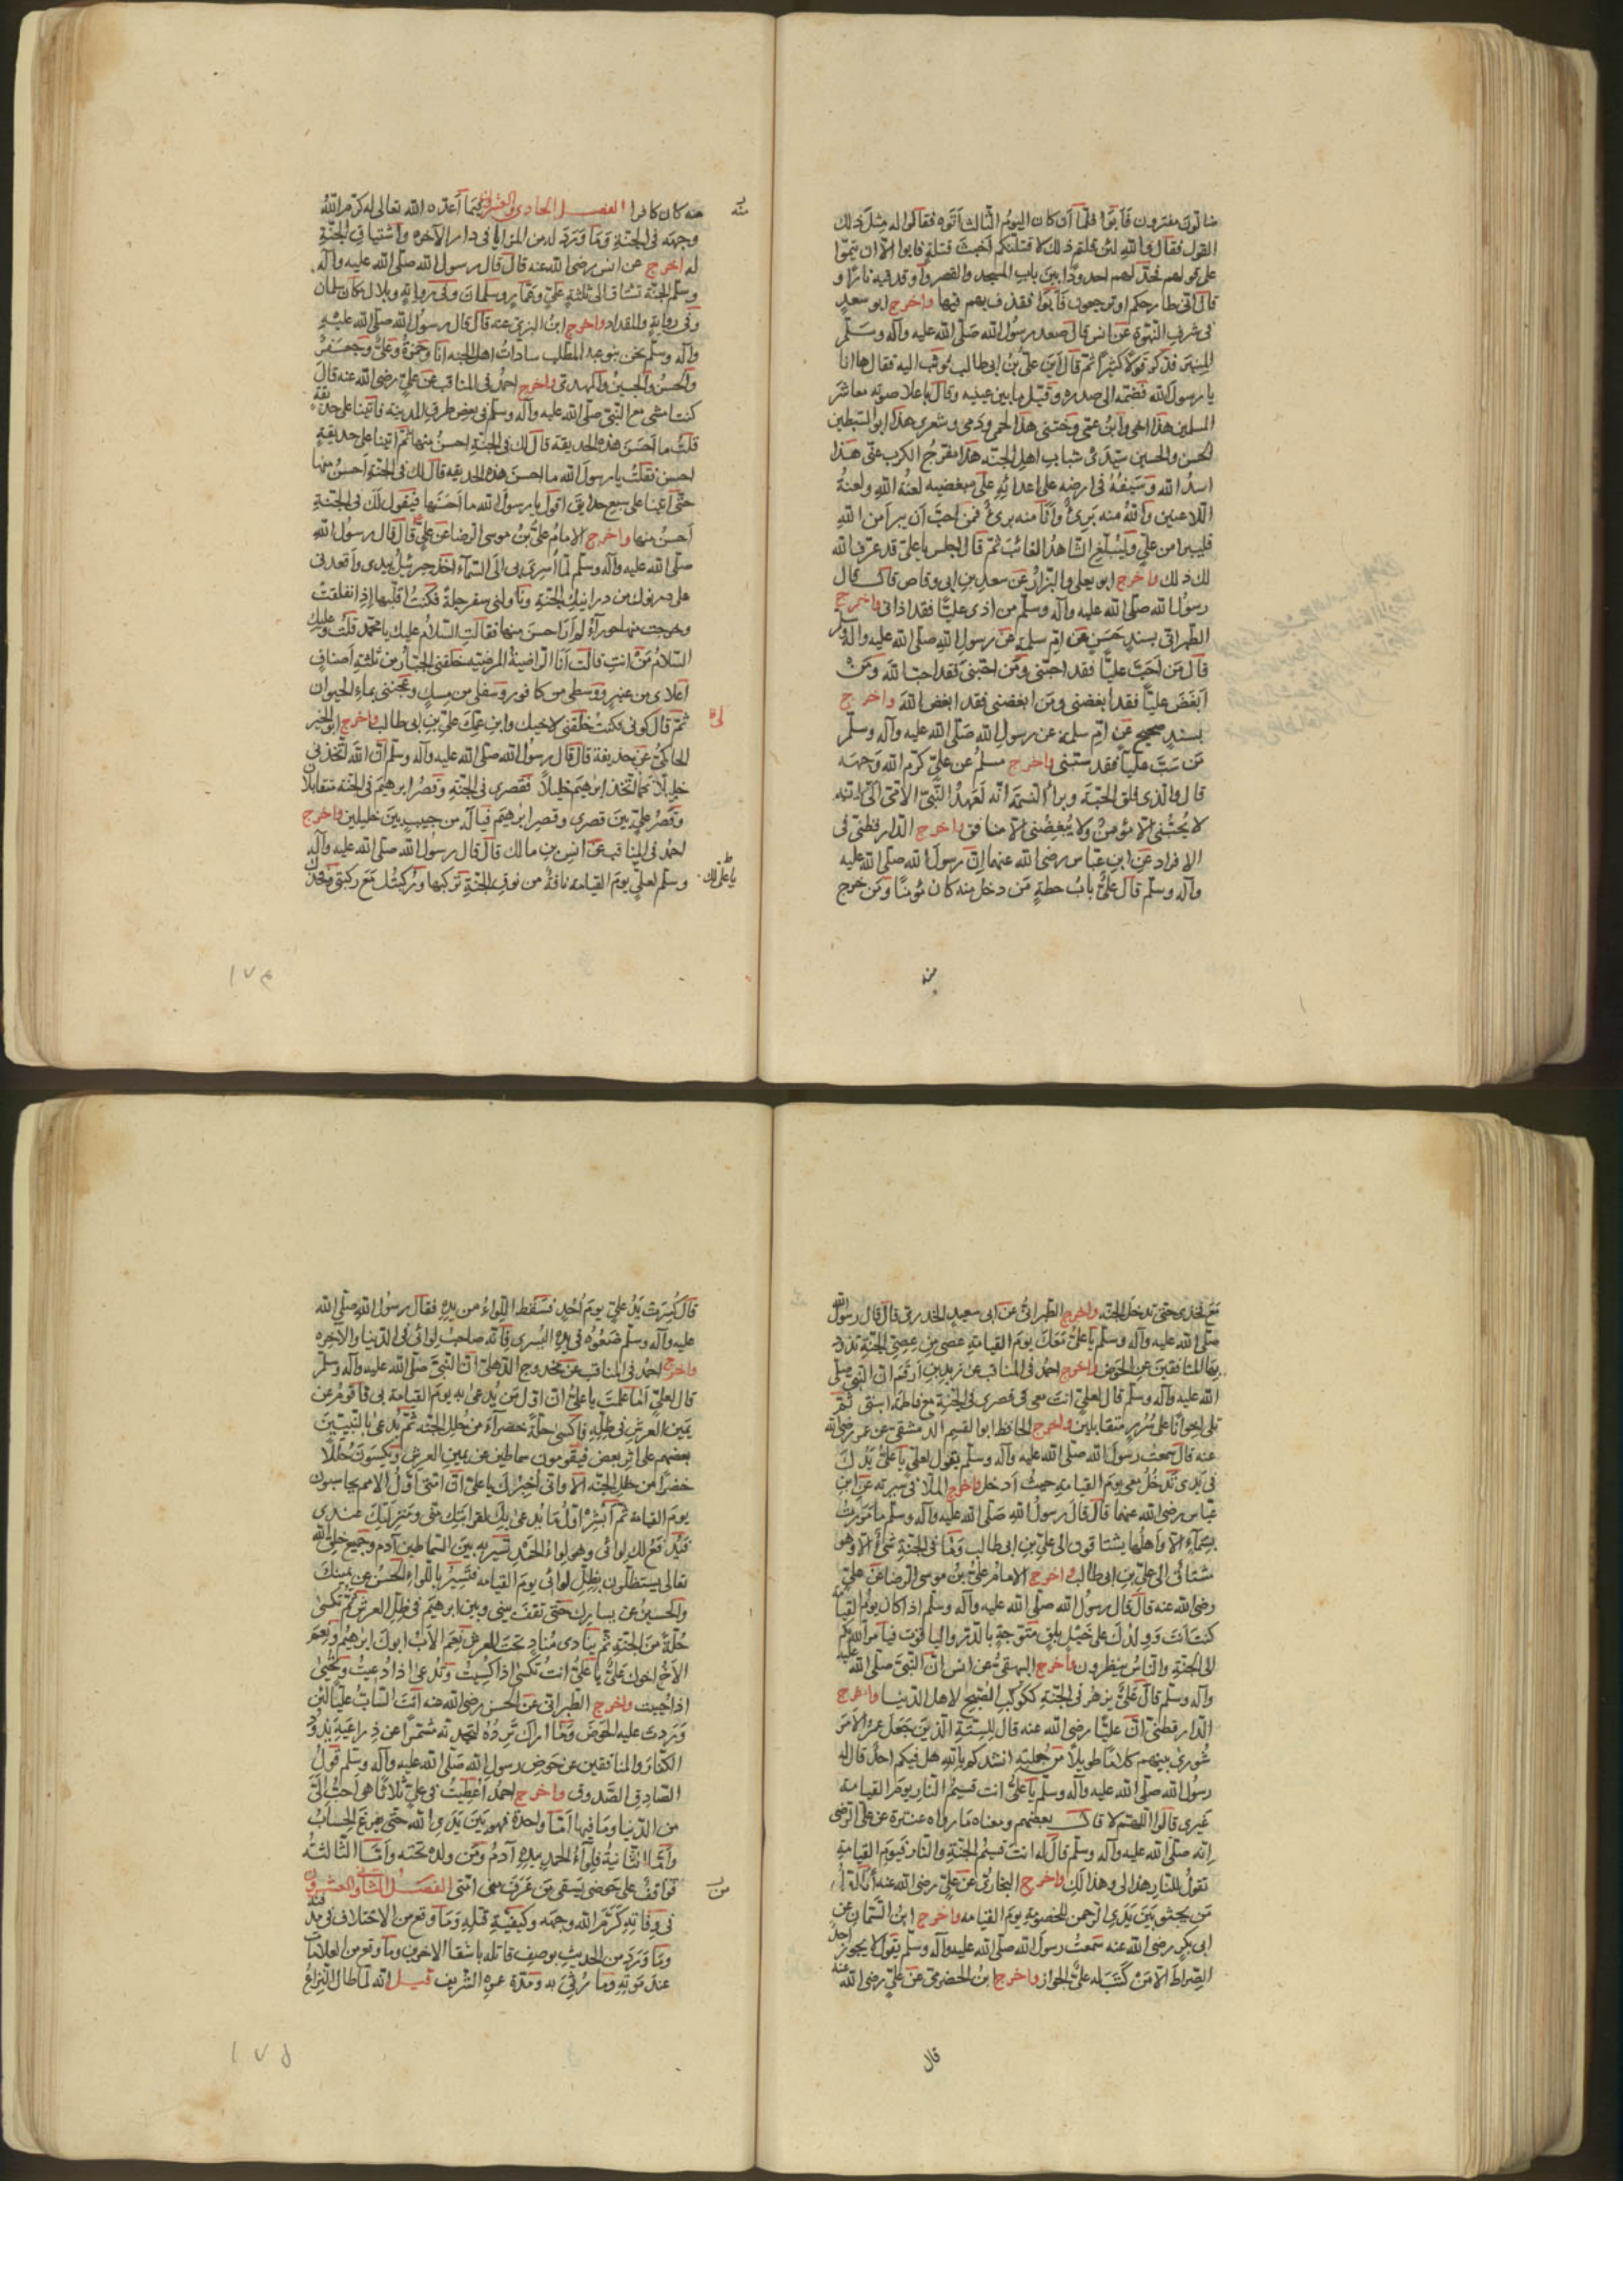 فأبوا فلما أن كان اليوم الثالث أتوه فقالوا له مثل ذلك
القول فقال والله لئن قلتم ذلك لاقتلنكم أخبث قتلة فابوا الا ان يتموا
على قولهم فخد لهم اخدودا بين باب المسجد والقصر وأوقد فيه نارا و
قال اني طارحكم او ترجعون فأبوا فقذف بهم فيها واخرج ابو سعد
في شرف النبوة عن انس قال صعد رسول الله صلى الله عليه وآله وسلم
المنبر فذكر قولا كثيرا ثم قال أين علي بن ابي طالب فوثب اليه فقال ها انا
يا رسول الله فضمه الى صدره وقبل ما بين عينيه وقال باعلا صوته معاشر
المسلمين هذا اخي وابن عمي وختني هذا لحمي ودمي وشعري هذا ابو السبطين
الحسن والحسين سيدي شباب اهل الجنه هذا مفرج الكرب عني هذا
اسد الله وسيفه في ارضه على اعدائه على مبغضيه لعنة الله ولعنة
اللاعنين والله منه بريء وأنا منه بريء فمن احب أن يبرأ من الله
فليبرأ من علي وليبلغ الشاهد الغائب ثم قال اجلس يا علي قد عرف الله
لك ذلك واخرج ابو يعلى والبزار عن سعد بن ابي وقاص قال قال
رسول الله صلى الله عليه وآله وسلم من اذى عليا فقد اذاني واخرج
الطبراني بسند حسن عن ام سلمة عن رسول الله صلى الله عليه وآله وسلم
قال من أحب عليا فقد احبني ومن احبني فقد احب الله ومن
أبغض عليا فقد أبغضني ومن ابغضني فقد ابغض الله واخرج
بسند صحيح عن ام سلمة عن رسول الله صلى الله عليه وآله وسلم
من سب عليا فقد سبني واخرج مسلم عن علي كرم الله وجهه
قال والذي فلق الحبة وبرأ النسمة انه لعهد النبي الامي الي انه
لا يحبني الا مؤمن ولا يبغضني الا منافق واخرج الدارقطني في
الافراد عن ابن عباس رضي الله عنهما ان رسول الله صلى الله عليه
وآله وسلم قال علي باب حطة من دخل منه كان مؤمنا ومن خرج
منه
منه كان كافرا الفصل الحادي والعشرون فيما أعده الله تعالى له كرم الله
وجهه في الجنة وما ورد له من المزايا في دار الآخره واشتياق الجنة
له اخرج عن انس رضي الله عنه قال قال رسول الله صلى الله عليه وآله
وسلم الجنة تشتاق الى ثلثة علي وعمار وسلمان وفي رواية وبلال مكان سلمان
وفي رواية والمقداد واخرج ابن البري عنه قال قال رسول الله صلى الله عليه
وآله وسلم نحن بنو عبد المطلب سادات اهل الجنه انا وحمزة وعلي وجعفر
والحسن والحسين والمهدي واخرج احمد في المناقب عن علي رضي الله عنه قال
كنت امشي مع النبي صلى الله عليه وآله وسلم في بعض طرق المدينة فأتينا على حديقة
قلت ما أحسن هذه الحديقة قال لك في الجنة احسن منها ثم اتينا على حديقة
احسن فقلت يا رسول الله ما احسن هذه الحديقه قال لك في الجنة أحسن منها
حتى أتينا على سبع حدايق اقول يا رسول الله ما أحسنها فيقول لك في الجنة
أحسن منها واخرج الامام علي بن موسى الرضا عن علي قال قال رسول الله
صلى الله عليه وآله وسلم لما أسري بي الى السماء أخذ جبرئيل بيدي وأقعدني
على درنوك من درانيك الجنة وناولني سفرجلة فكنت اقلبها إذ انفلقت
وخرجت منها حوراء لم أر احسن منها فقالت السلام عليك يا محمد قلت وعليك
السلام من انت قالت أنا الراضية المرضيه خلقني الجبار من ثلثة أصناف
أعلاي من عنبر ووسطي من كافور وسفلي من مسك وعجنني بماء الحيوان
ثم قال كوني فكنت خلقني لاخيك وابن عمك علي بن ابي طالب واخرج ابو الخير
الحاكمي عن حذيفة قال قال رسول الله صلى الله عليه وآله وسلم ان الله اتخذني
خليلا كما اتخذ ابرهيم خليلا فقصري في الجنة وقصر ابرهيم في الجنة متقابلا
وقصر علي بين قصري وقصر ابرهيم فيا له من حبيب بين خليلين واخرج
احمد في المناقب عن انس بن مالك قال قال رسول الله صلى الله عليه وآله
وسلم لعلي يوم القيامه ناقة من نوق الجنة تركبها وركبتك مع ركبتي وفخذك
يا علي لك
١٧٤
مع فخذي حتى تدخل الجنه واخرج الطبراني عن ابي سعيد الخدري قال قال رسول الله
صلى الله عليه وآله وسلم يا علي معك يوم القيامة عصى من عصي الجنة تذود
بها المنافقين عن الحوض واخرج احمد في المناقب عن زيد بن أرقم ان النبي صلى
الله عليه وآله وسلم قال لعلي انت معي في قصري في الجنة مع فاطمة ابنتي ثم
تلى اخوانا على سرر متقابلين واخرج الحافظ ابو القسم الدمشقي عن عمر رضي الله
عنه قال سمعت رسول الله صلى الله عليه وآله وسلم يقول لعلي يا علي يدك
في يدي تدخل معي يوم القيامة حيث أدخل واخرج الملا في سيرته عن ابن
عباس رضي الله عنهما قال قال رسول الله صلى الله عليه وآله وسلم ما مررت
بسماء الا وأهلها يشتاقون الى علي بن ابي طالب وما في الجنة نبي الا وهو
مشتاق الى علي بن ابي طالب واخرج الامام علي بن موسى الرضا عن علي
رضي الله عنه قال قال رسول الله صلى الله عليه وآله وسلم اذا كان يوم القيامة
كنت أنت وولدك على خيل بلق متوجة بالدر والياقوت فيأمر الله بكم
الى الجنة والناس ينظرون واخرج البيهقي عن انس ان النبي صلى الله عليه
وآله وسلم قال علي يزهر في الجنة ككوكب الصبح لاهل الدنيا واخرج
الدارقطني ان عليا رضي الله عنه قال للستة الذين جعل عمر الأمر
شورى بينهم كلاما طويلا من جملته انشدكم بالله هل فيكم احد قال له
رسول الله صلى الله عليه وآله وسلم يا علي انت قسيم النار يوم القيامة
غيري قالوا اللهم لا قال بعضهم ومعناه ما رواه عنترة عن علي الرضي
انه صلى الله عليه وآله وسلم قال له انت قسيم الجنة والنار فيوم القيامة
تقول للنار هذا لي وهذا لك واخرج البخاري عن علي رضي الله عنه أنا اول
من يجثو بين يدي الرحمن للخصومة يوم القيامه واخرج ابن السمان عن
ابي بكر رضي الله عنه سمعت رسول الله صلى الله عليه وآله وسلم يقول لا يجوز احد
الصراط الا من كتب له علي الجواز واخرج ابن الحضرمي عن علي رضي الله عنه
قال
قال كسرت يد علي يوم أحد فسقط اللواء من يده فقال رسول الله صلى الله
عليه وآله وسلم ضعوه في يده اليسرى فانه صاحب لوائي في الدنيا والآخره
واخرج احمد في المناقب عن مخدوج الذهلي ان النبي صلى الله عليه وآله وسلم
قال لعلي أما علمت يا علي ان اول من يدعى به يوم القيامة بي فأقوم عن
يمين العرش في ظله فاكسى حلة خضراء من حلل الجنه ثم يدعى بالنبيين
بعضهم على اثر بعض فيقومون سماطين عن يمين العرش ويكسون حللا
خضرا من حلل الجنه الا واني أخبرك يا علي ان امتي أول الامم يحاسبون
يوم القيامة ثم أبشر اول ما يدعى بك لقرابتك مني ومنزلتك عندي
فيدفع لك لوائي وهو لواء الحمد تسير به بين السماطين آدم وجميع خلق الله
تعالى يستظلون بظل لوائي يوم القيامه فتسير باللواء الحسن عن يمينك
والحسين عن يسارك حتى تقف بيني وبين ابرهيم في ظل العرش ثم تكسى
حلة من الجنة ثم ينادي مناد تحت العرش نعم الأب ابوك ابرهيم ونعم
الأخ اخوك علي يا علي انت تكسى اذا كسيت وتدعى اذا دعيت وتحيى
اذا حييت واخرج الطبراني عن الحسن رضي الله عنه انت الساب عليا لئن
وردت عليه الحوض وما اراك ترده لتجدنه مشمرا عن ذراعيه يذود
الكفار والمنافقين عن حوض رسول الله صلى الله عليه وآله وسلم قول
الصادق الصدوق واخرج احمد اعطيت في علي ثلاثا هي أحب الي
من الدنيا وما فيها أما واحدة فهو بين يدي الله حتى يفرغ الحساب
وأما الثانية فلواء الحمد بيده آدم ومن ولده تحته وأما الثالثة
فواقف على حوضي يسقي من عرف من امتي الفصل الثاني والعشرون
في وفاته كرم الله وجهه وكيفية قتله وما وقع من الاختلاف في مدفنه
وما ورد من الحديث بوصف قاتله باشقا الاخرين وما وقع من العلامات
عند موته وما رثي به ومدة عمره الشريف قيل انه لما طال النزاع
من
١٧٥